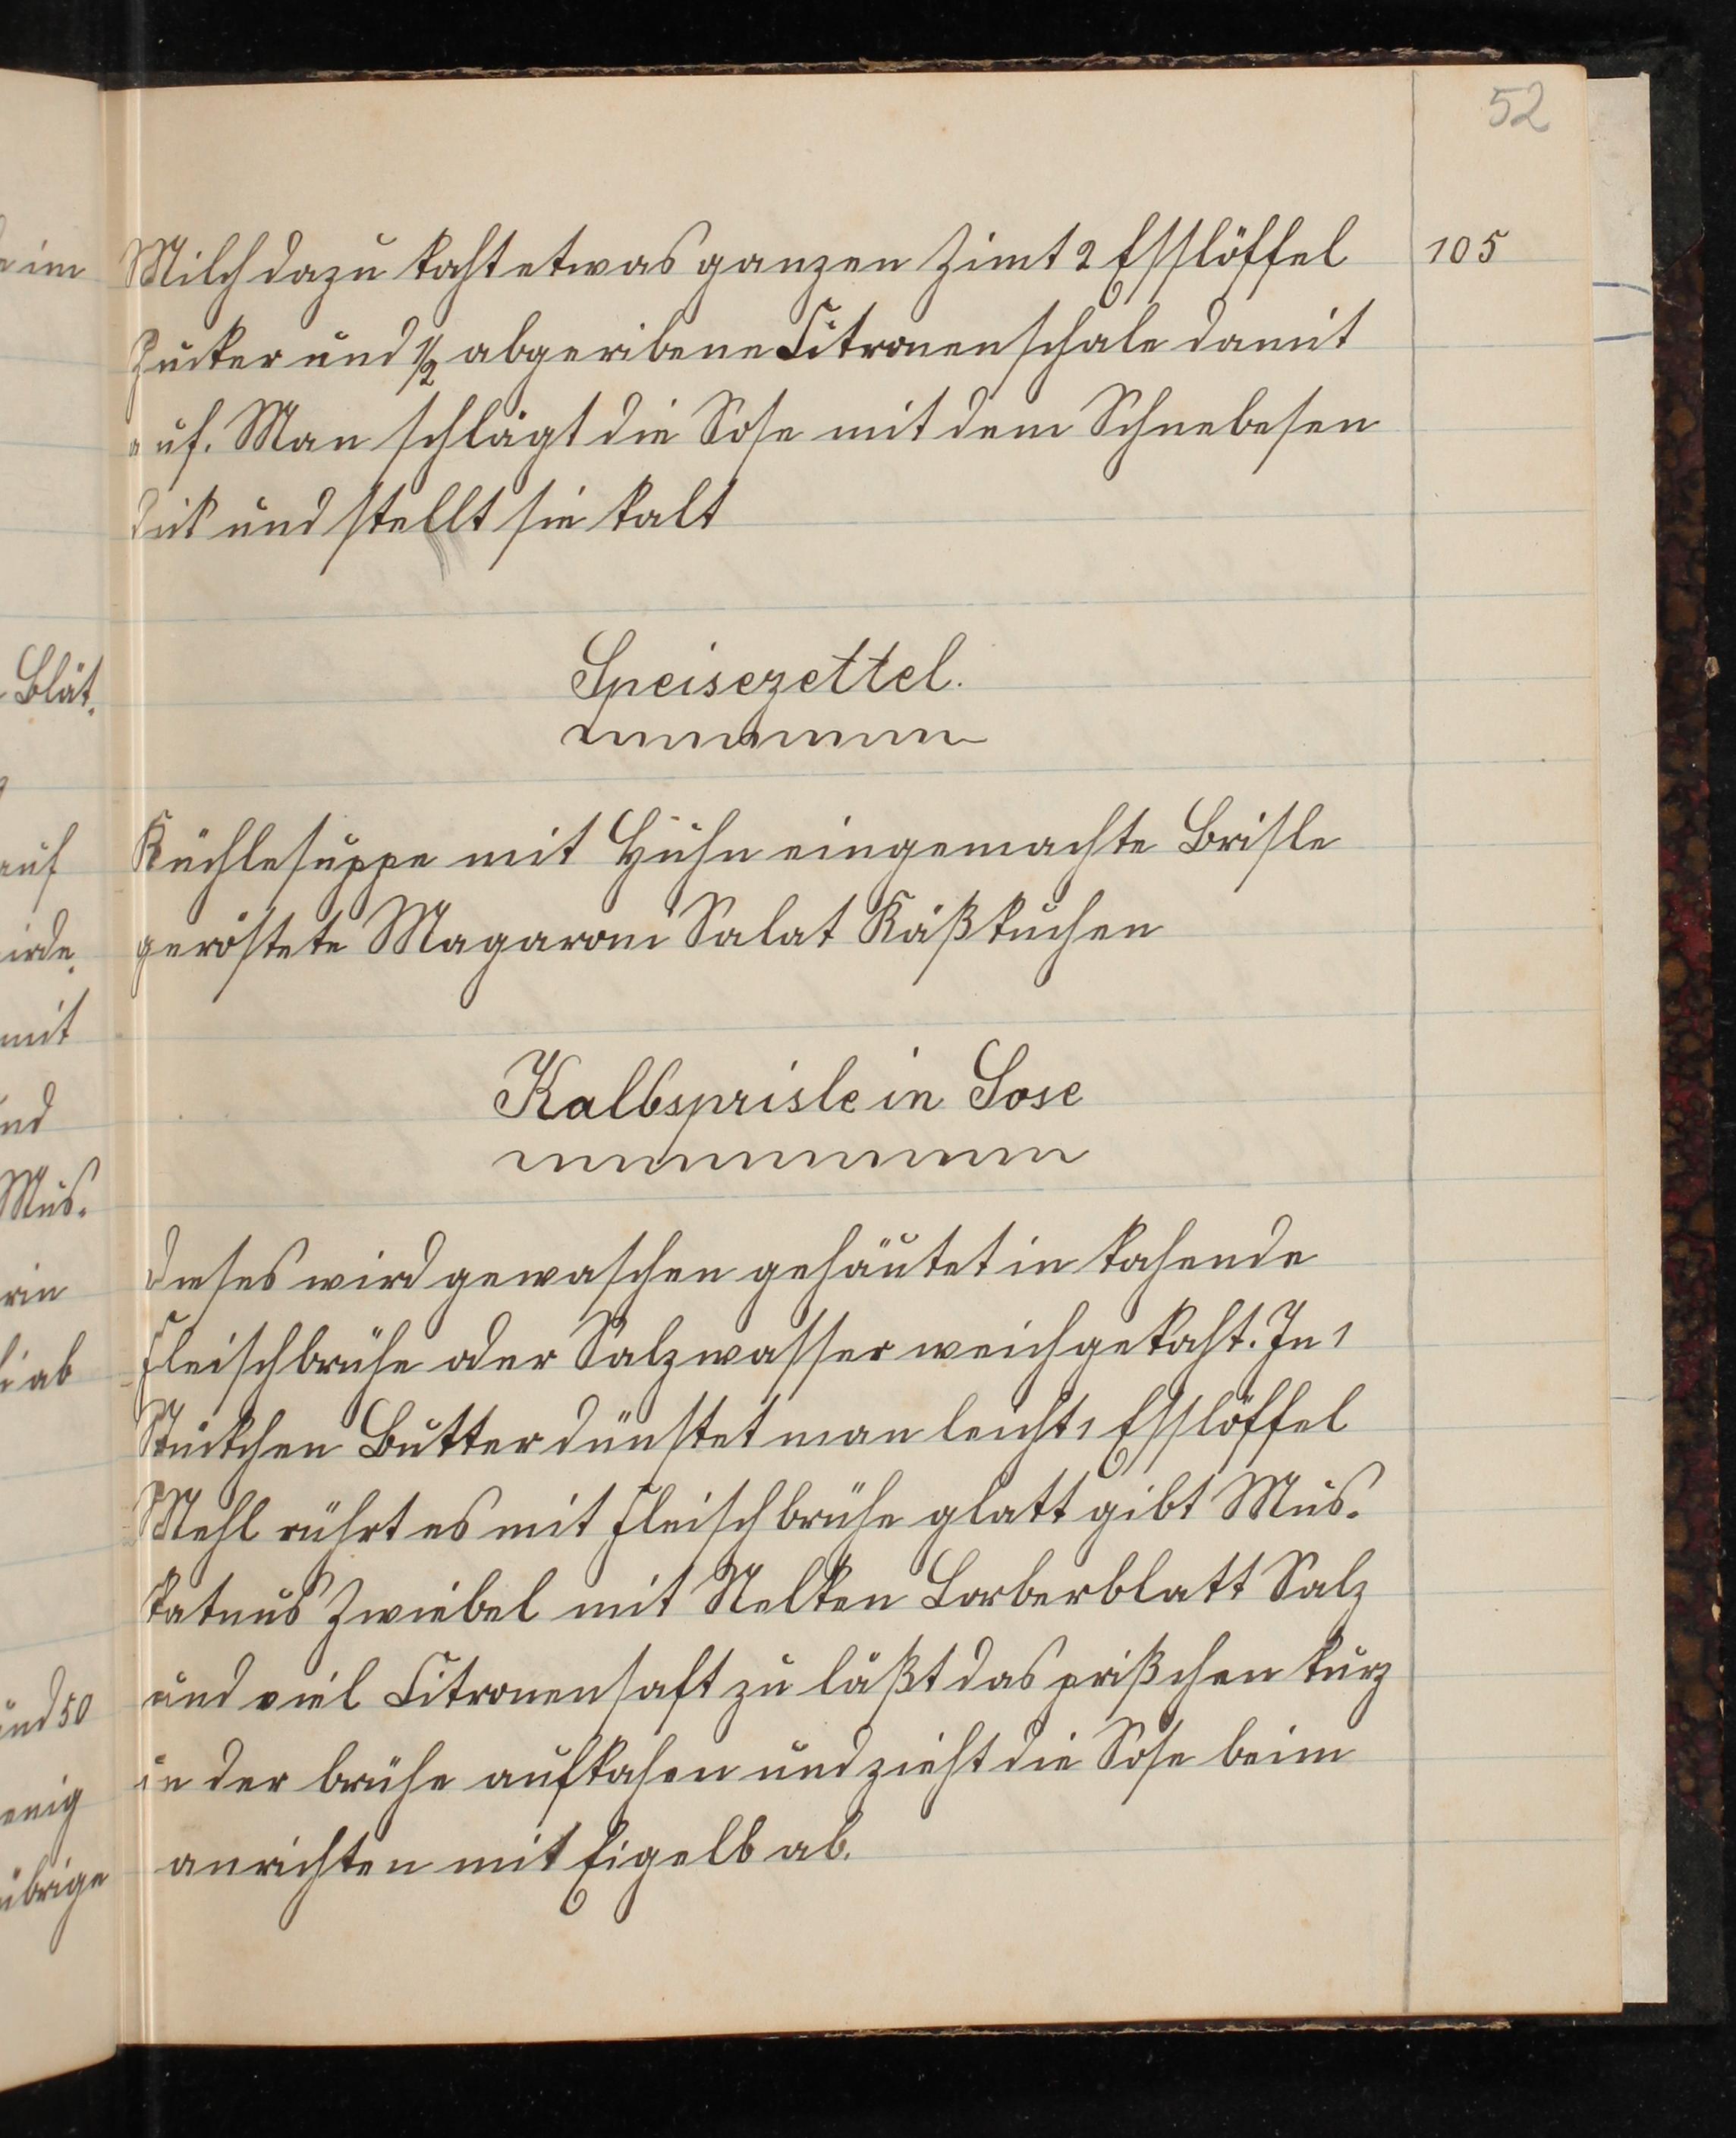 52
105
Milch dazu kocht etwas ganzen Zimt 2 Esslöffel
Zucker und 1/2 abgeribene Citronenschale damit
auf. Man schlägt die Sose mit dem Schnebesen
dick und stellt sie kalt
Speisezettel.
Küchlesuppe mit Huhn eingemachte Brisle
geröstete Magaroni Salat Käßkuchen
Kalbsprisle in Sose
dieses wird gewaschen gehäutet in kochende
Fleischbrühe oder Salzwasser weichgekocht. In 1
Stückchen Butter dünstet man leicht 1 Esslöffel
Mehl rührt es mit Fleischbrühe glatt gibt Mus.
katnus Zwiebel mit Nelken Lorberblatt Salz
und viel Citronensaft zu läßt das prißchen kurz
in der brühe aufkochen und zieht die Sose beim
anrichten mit Eigelb ab.